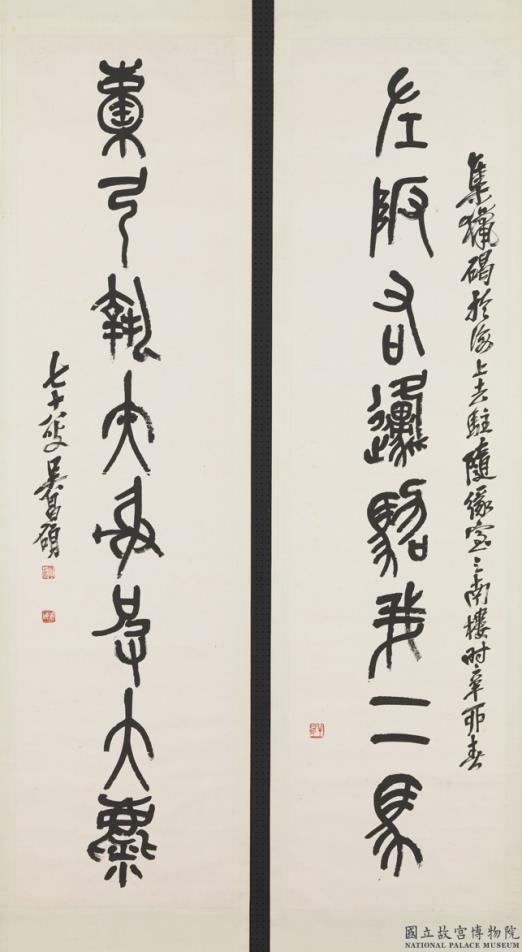 集獵碣於海上去駐隨緣室之南樓時辛酉春
左阪右邍駕我二馬
弓執矢射大麋
七十八叟吳昌碩
國立故宮博物院
NATIONAL PALACE MUSEUM